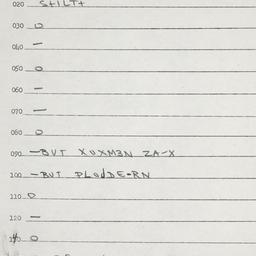 020 StILT+
030 O
040 —
050 O
060 —
070 —
080 O
090 —BUT XUXMEN ZA-X
100 —BUT PLodDE-RN
110 O
120 —
130 O